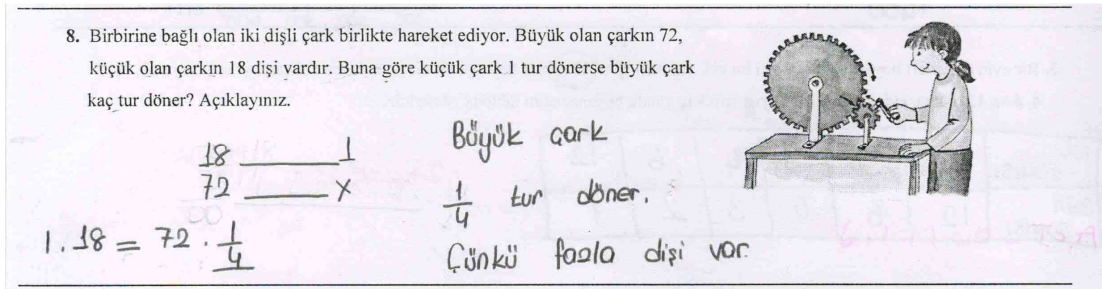 8. Birbirine bağlı olan iki dişli çark birlikte hareket ediyor. Büyük olan çarkın 72,
küçük olan çarkın 18 dişi vardır. Buna göre küçük çark 1 tur dönerse büyük çark
kaç tur döner? Açıklayınız.
18 ——— 1
72 ——— x
1.18 = 72 . 1/4
Büyük çark
1/4 tur döner.
Çünkü fazla dişi var.